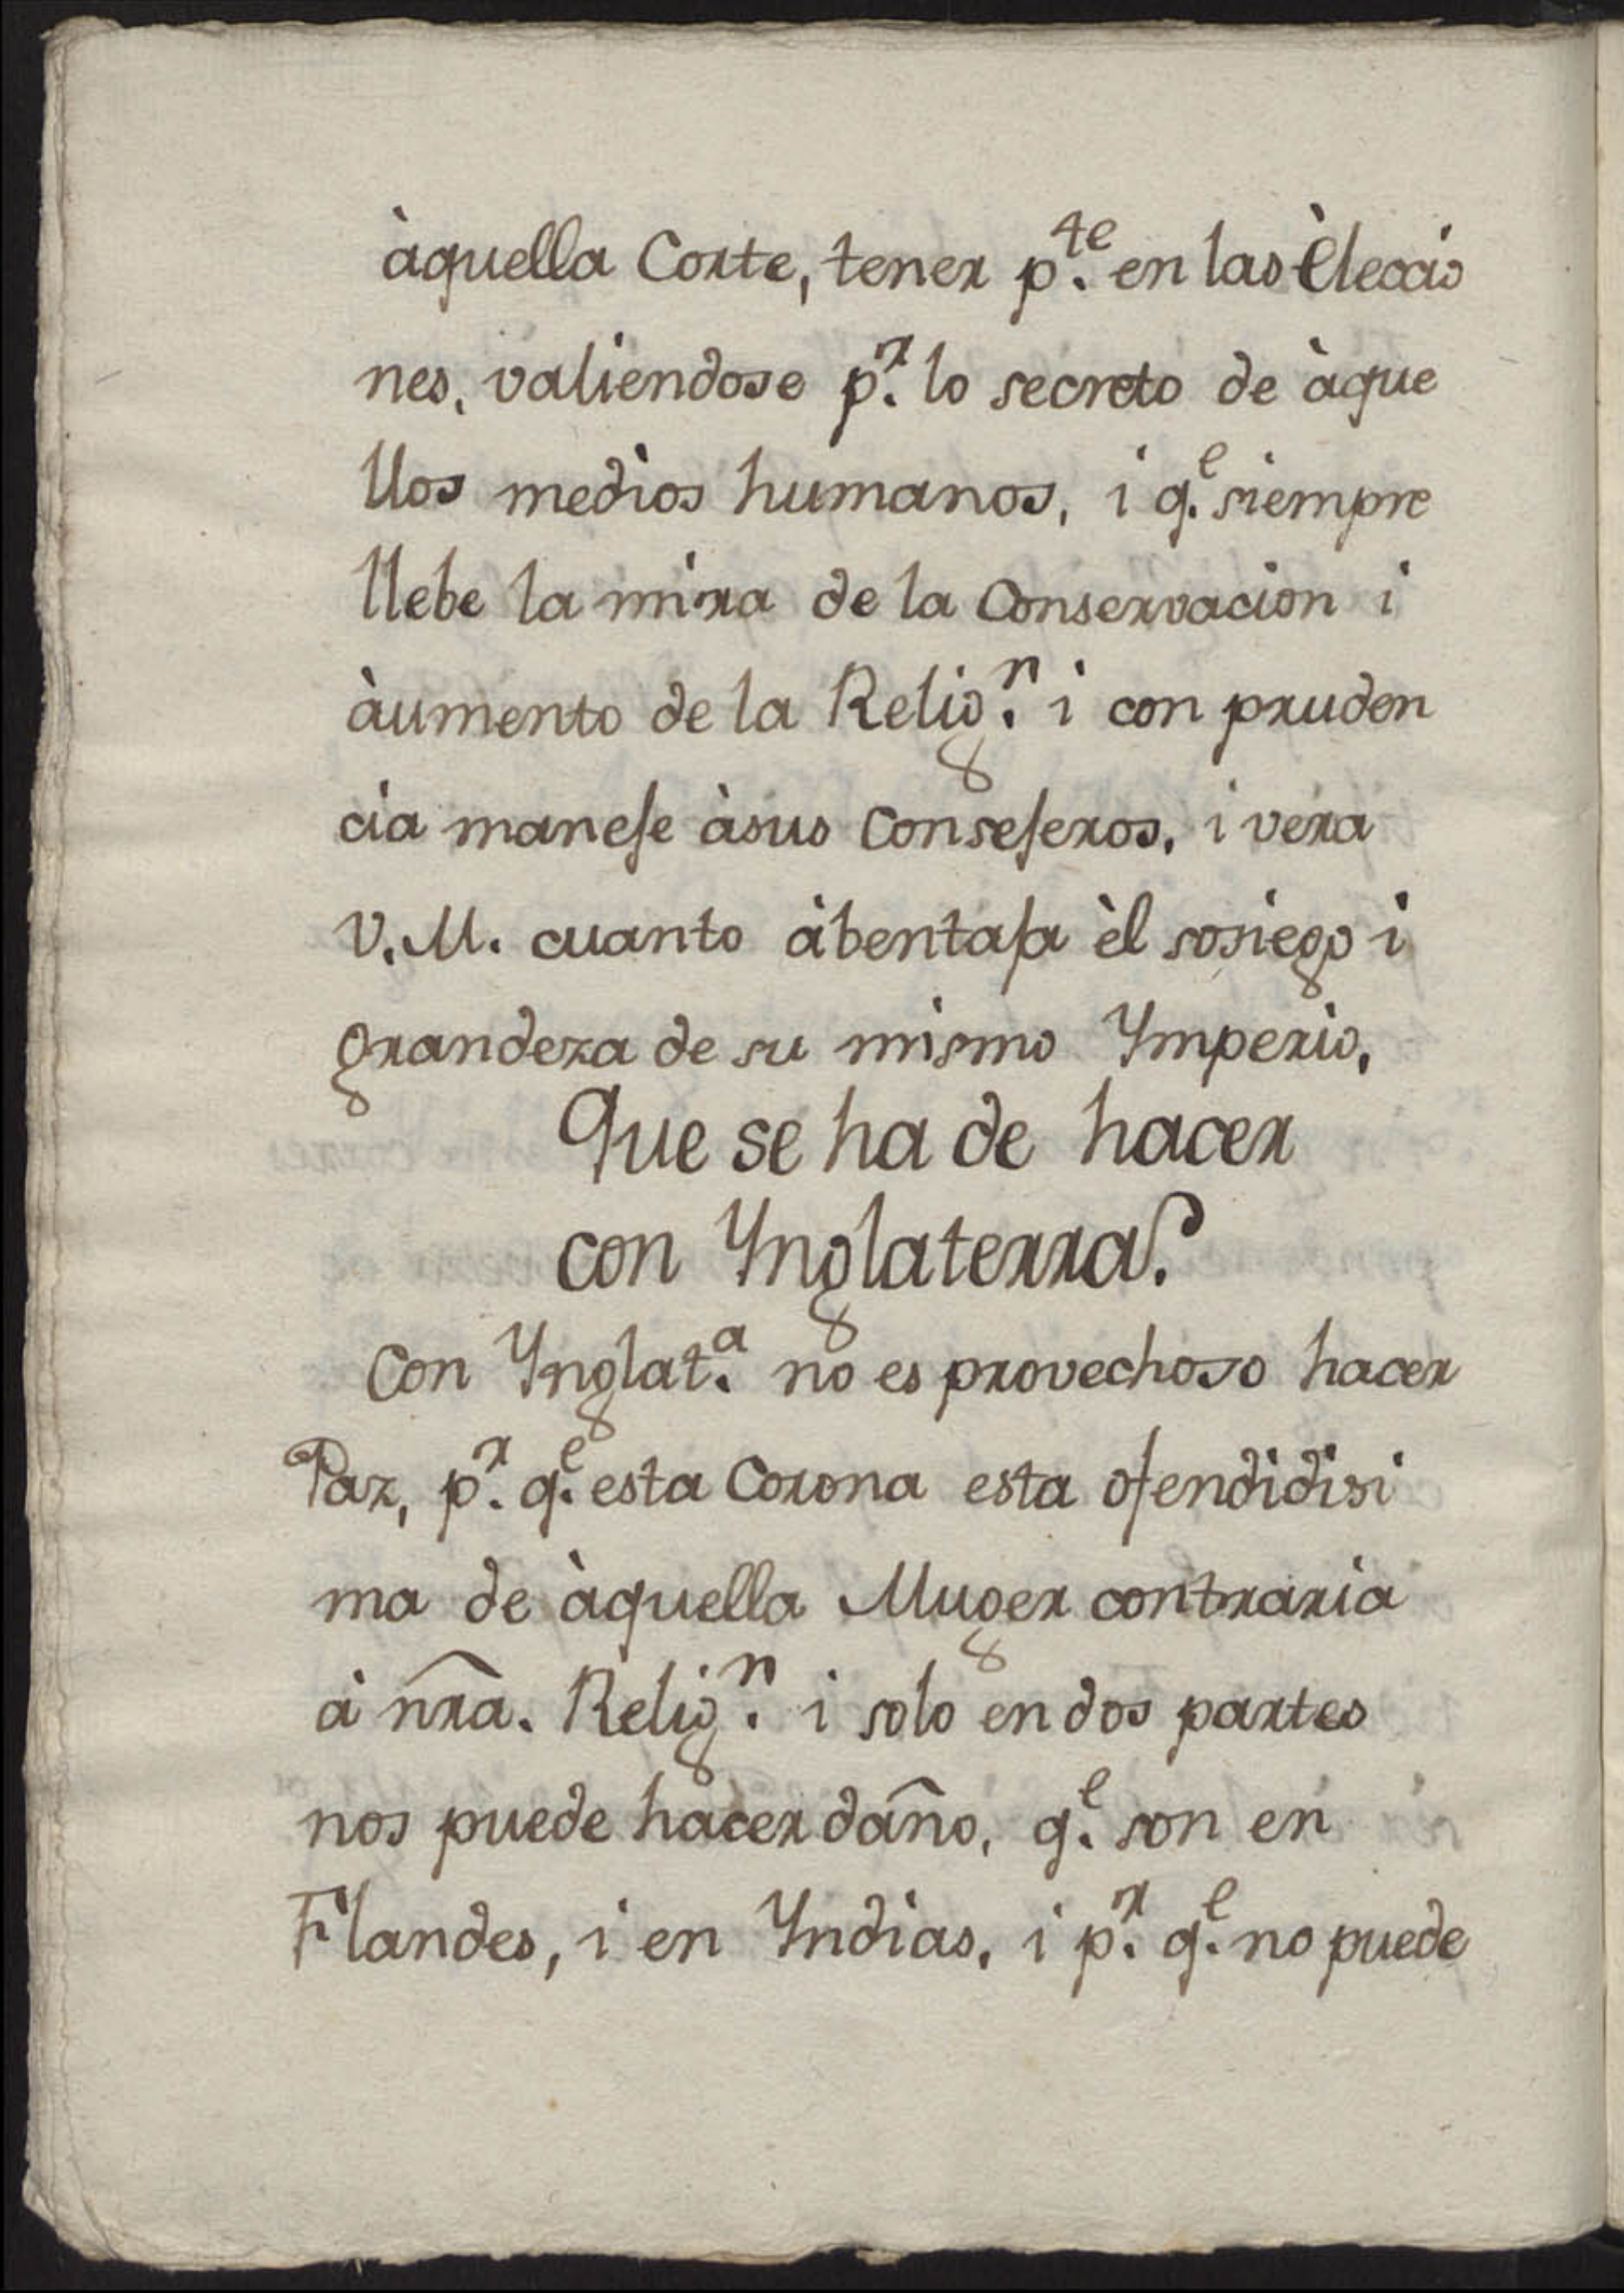 àquella Corte, tener p.te en las èleccio
nes, valiendose p.r lo secreto de àque
llos medios humanos, i q.e siempre
llebe la mira de la Conservacion i
àumento de la Relig.n i con pruden
cia maneje àsus Consejeros, i vera
V.M. cuanto àbentaja èl sosiego i
grandeza de su mismo Ymperio,
Que se ha de hacer
con Ynglaterra?
Con Ynglat.a no es provechoso hacer
Paz, p.r q.e esta Corona esta ofendidisi
ma de àquella Muger contraria
à nr̃a. Relig.n i solo en dos partes
nos puede hacer daño, q.e son en
Flandes, i en Yndias, i p.r q.e no puede